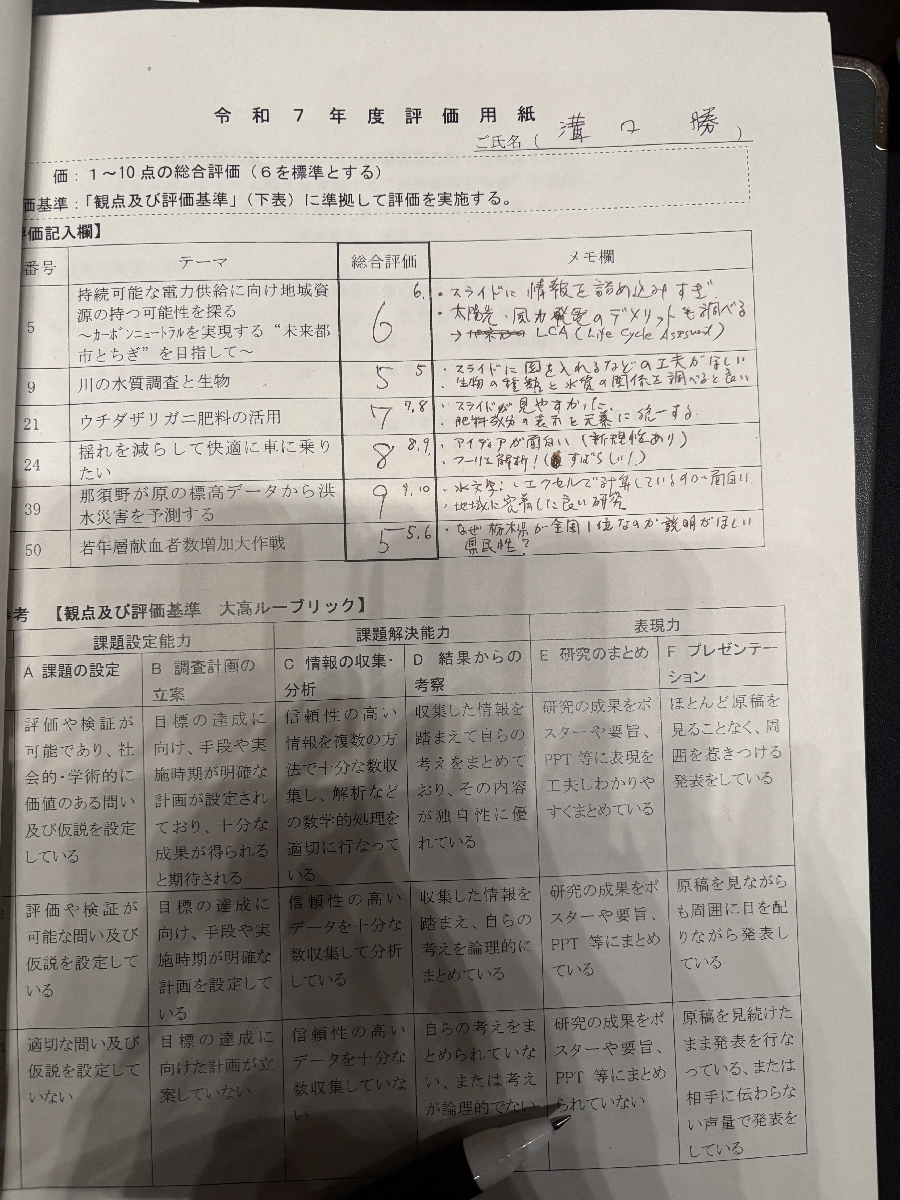 令和7年度評価用紙
ご氏名（ 溝口 勝 ）
価：1～10点の総合評価（6を標準とする）
価基準：「観点及び評価基準」（下表）に準拠して評価を実施する。
評価記入欄】
番号 テーマ 総合評価 メモ欄
5 持続可能な電力供給に向け地域資
源の持つ可能性を探る
～カーボンニュートラルを実現する“未来都
市とちぎ”を目指して～
6 6.
・スライドに情報を詰め込みすぎ
・太陽光・風力発電のデメリットも調べる
→ LCA (Life Cycle Assesment)
9 川の水質調査と生物 5 5
・スライドに図を入れるなどの工夫がほしい
・生物の種類と水質の関係を調べると良い
21 ウチダザリガニ肥料の活用 7 7,8
・スライドが見やすかった
・肥料成分の表示を元素に統一する
24 揺れを減らして快適に車に乗り
たい
8 8,9
・アイディアが面白い（新規性あり）
・フーリエ解析！（すばらしい！）
39 那須野が原の標高データから洪
水災害を予測する
9 9,10
・水文学をエクセルで計算しているのが面白い
・地域に密着した良い研究
50 若年層献血者数増加大作戦 5 5,6
・なぜ栃木県が全国1位なのか説明がほしい
県民性？
参考 【観点及び評価基準 大高ルーブリック】
課題設定能力 課題解決能力 表現力
A 課題の設定
B 調査計画の
立案
C 情報の収集・
分析
D 結果からの
考察
E 研究のまとめ
F プレゼンテー
ション
評価や検証が
可能であり、社
会的・学術的に
価値のある問い
及び仮説を設定
している
目標の達成に
向け、手段や実
施時期が明確な
計画が設定され
ており、十分な
成果が得られる
と期待される
信頼性の高い
情報を複数の方
法で十分な数収
集し、解析など
の数学的処理を
適切に行なって
いる
収集した情報を
踏まえて自らの
考えをまとめて
おり、その内容
が独自性に優
れている
研究の成果をポ
スターや要旨、
PPT 等に表現を
工夫しわかりや
すくまとめている
ほとんど原稿を
見ることなく、周
囲を惹きつける
発表をしている
2
評価や検証が
可能な問い及び
仮説を設定して
いる
目標の達成に
向け、手段や実
施時期が明確な
計画を設定して
いる
信頼性の高い
データを十分な
数収集して分析
している
収集した情報を
踏まえ、自らの
考えを論理的に
まとめている
研究の成果をポ
スターや要旨、
PPT 等にまとめ
ている
原稿を見ながら
も周囲に目を配
りながら発表し
ている
1
適切な問い及び
仮説を設定して
いない
目標の達成に
向けた計画が立
案していない
信頼性の高い
データを十分な
数収集していな
い
自らの考えをま
とめられていな
い、または考え
が論理的でない
研究の成果をポ
スターや要旨、
PPT 等にまとめ
られていない
原稿を見続けた
まま発表を行な
っている、または
相手に伝わらな
い声量で発表を
している